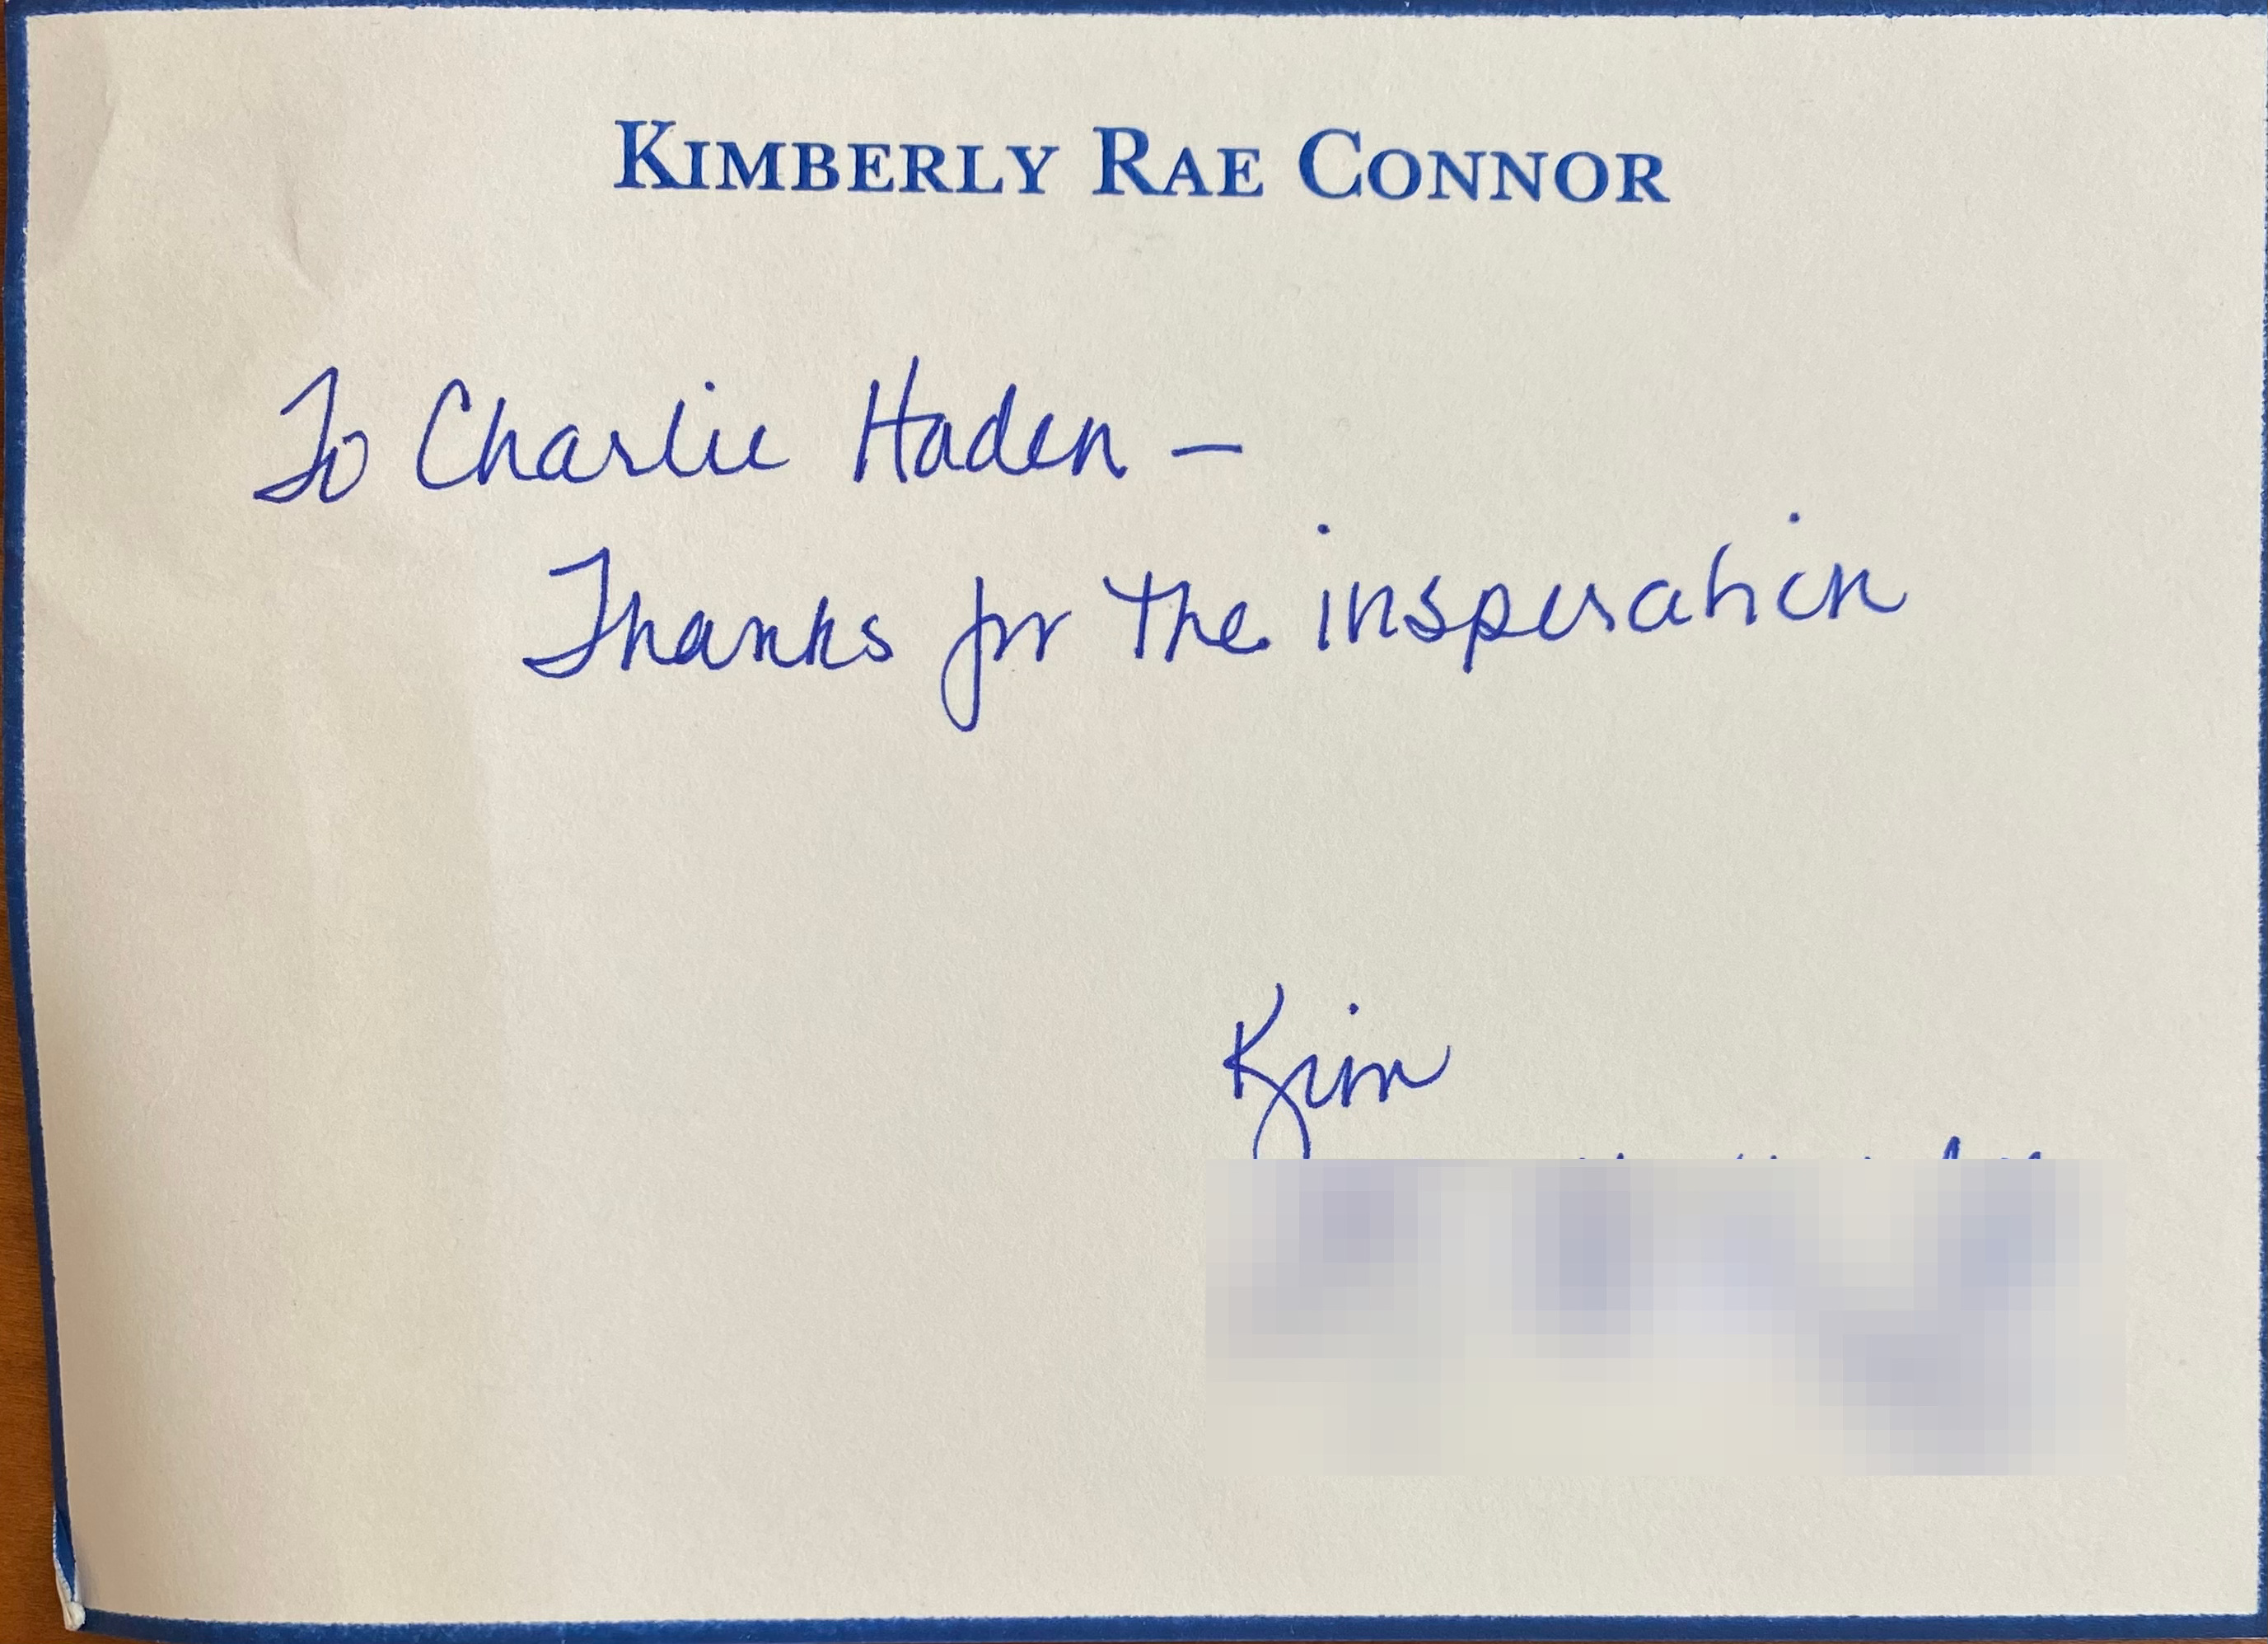 KIMBERLY RAE CONNOR
To Charlie Haden –
Thanks for the insperation
Kim